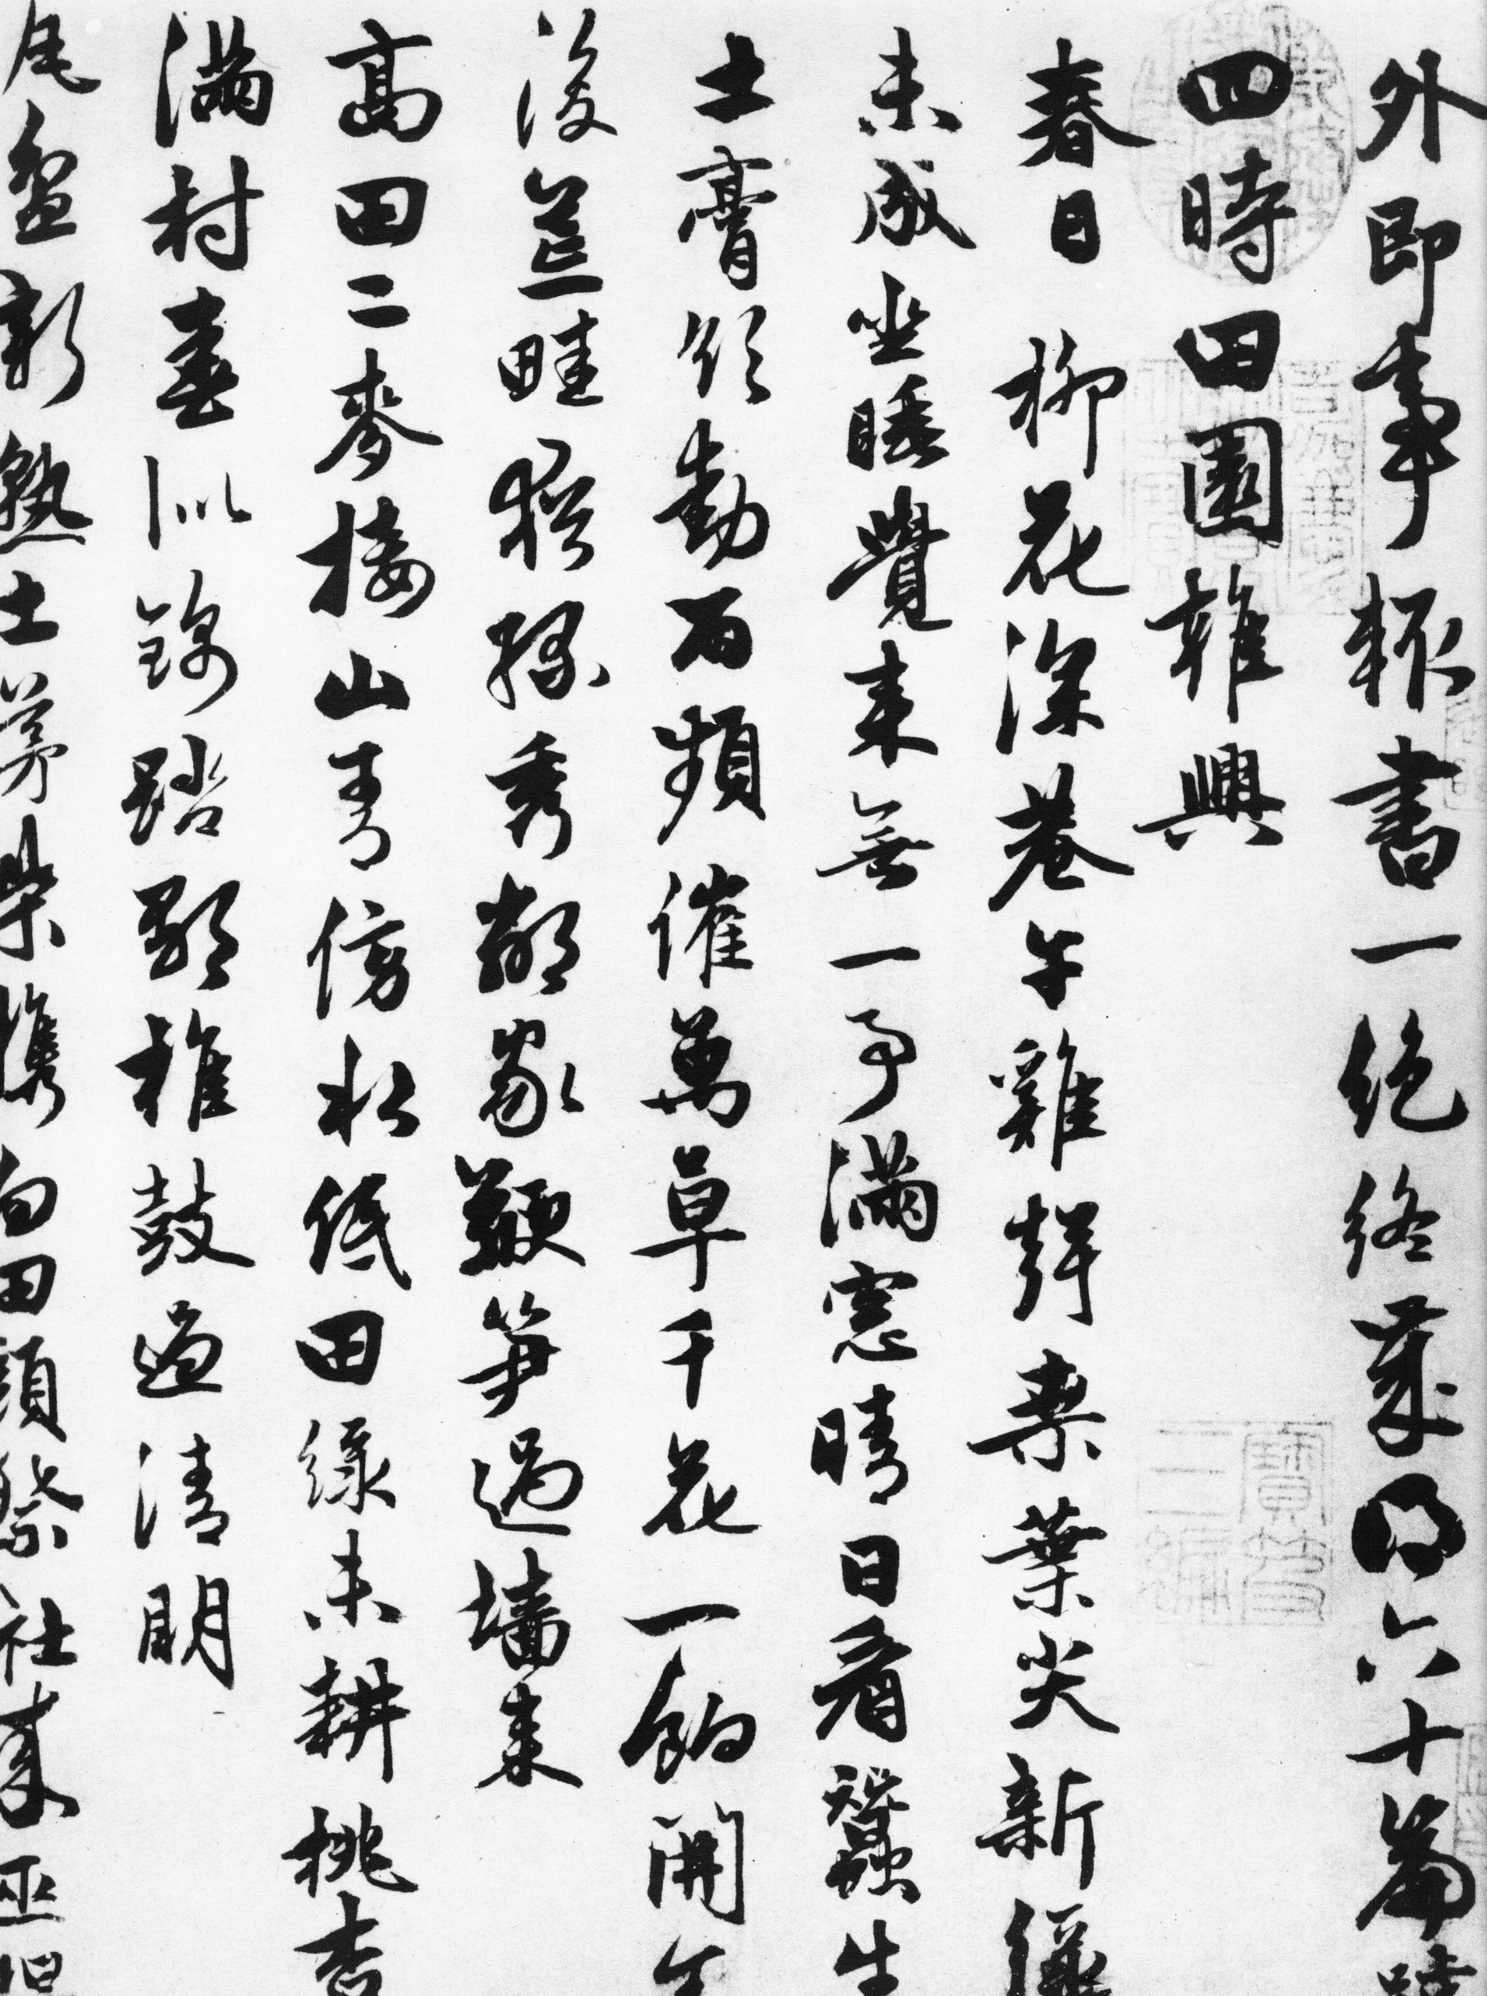 外即事輒書一絕終歲得六十篇號
四時田園雜興
春日　柳花深巷午雞聲桑葉尖新綠
未成坐睡覺來無一事滿窓晴日看蠶生
土膏欲動雨頻催萬草千花一餉開舍
後荒畦猶綠秀鄰家鞭笋過墻來
高田二麥接山青傍水低田綠未耕桃杏
滿村春似錦踏歌椎鼓過清明
老盆新熟土茅柴攜向田頭祭社來巫媼